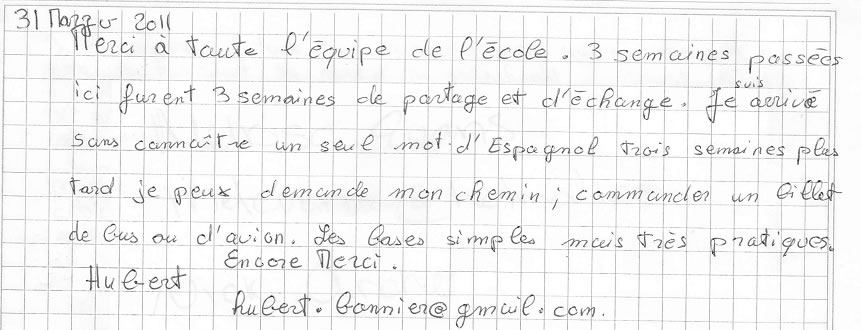 31 Marzo 2011
Merci à toute l'équipe de l'école. 3 semaines passées
ici furent 3 semaines de partage et d'échange. Je suis arrivé
sans connaître un seul mot d'Espagnol trois semaines plus
tard je peux demande mon chemin ; commander un billet
de bus ou d'avion. Les bases simples mais très pratiques.
Encore Merci.
Hubert
hubert.bonnier@gmail.com.